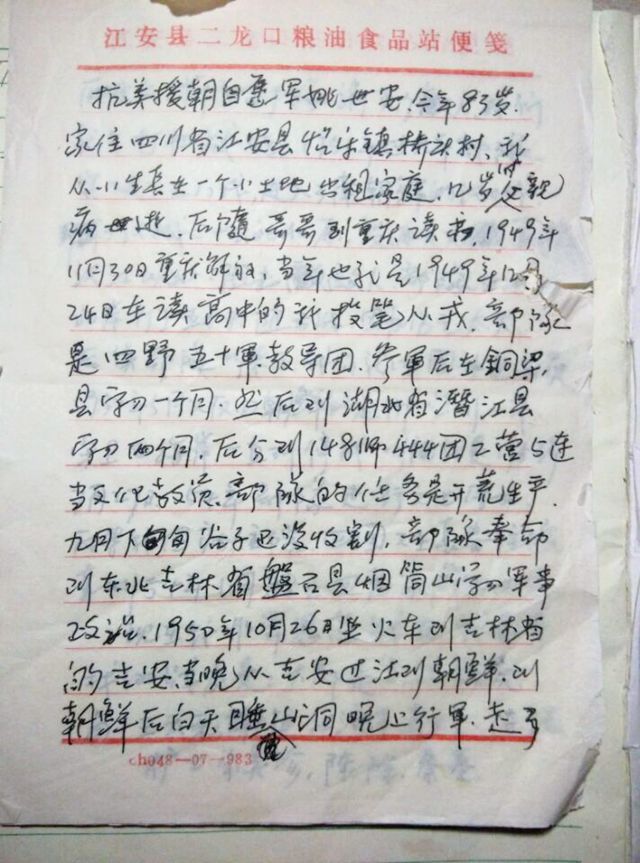 江安县二龙口粮油食品站便笺
抗美援朝自愿军姚世安.今年83岁.
家住四川省江安县怡乐镇桥头村、我
从小生长在一个小土地出租家庭.12岁时父親
病逝.后随哥哥到重庆读书.1949年
11月30日重庆解放,当年也就是1949年12月
24日在读高中的我投笔从戎.部隊
是四野五十軍教导团.參軍后在銅梁
县学习一个月.然后到湖北省潛江县
学习两个月.后分到148师444团2营5连
当文化教员.部隊的任务是开荒生产.
九月下旬谷子还没收割,部隊奉命
到东北吉林省盤石县烟筒山学习军事
政治.1950年10月26日坐火车到吉林省
的吉安.当晚从吉安过江到朝鲜.到
朝鲜后白天睡山洞晚上行軍.走了
ch048—07—983